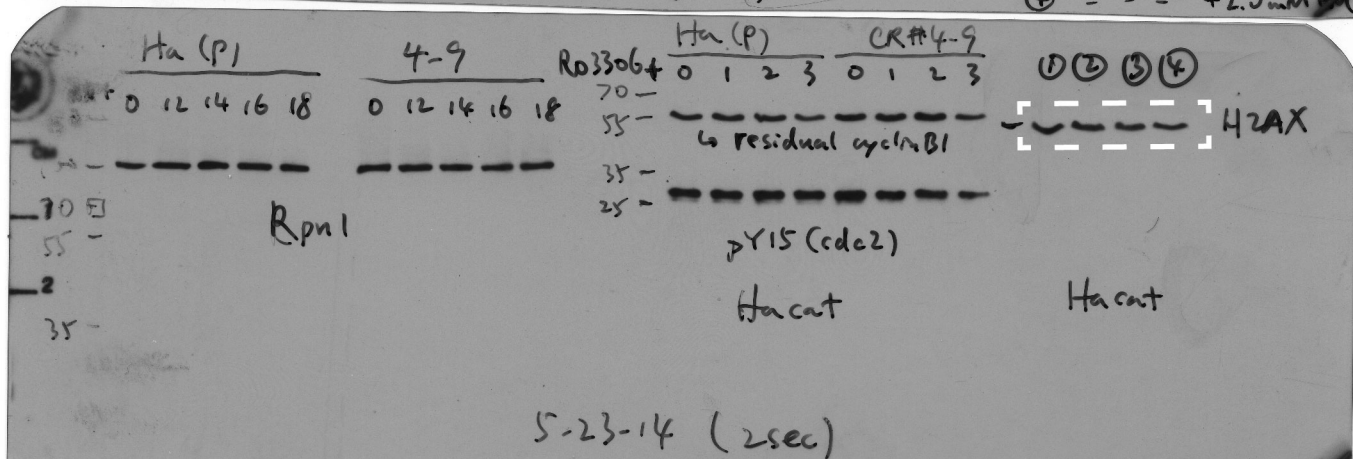 Ha (P)
4-9
0 12 14 16 18
0 12 14 16 18
70
55
2
35
Rpn1
Ha (P)
CR#4-9
RO3306+
0 1 2 3 0 1 2 3
70 -
55 -
↳ residual cyclin B1
35 -
25 -
pY15 (cdc2)
Hacat
① ② ③ ④
H2AX
Hacat
5-23-14 (2sec)